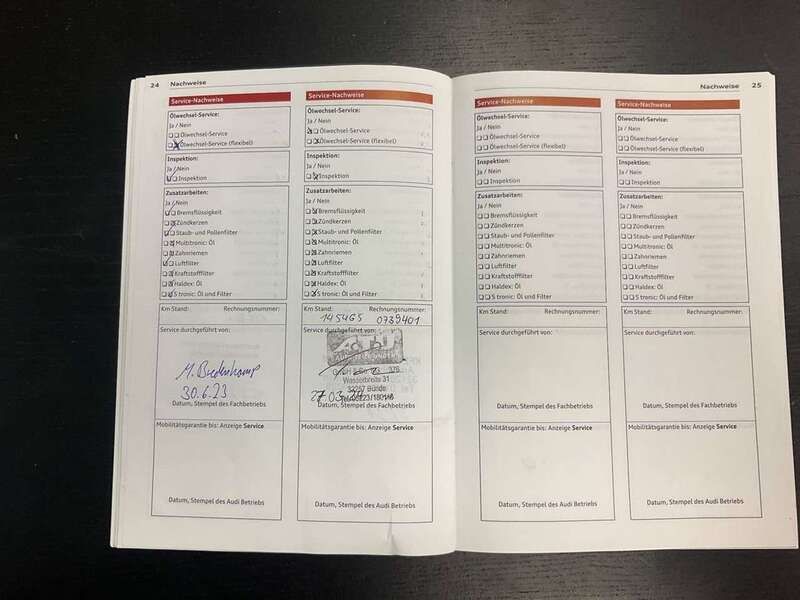 24 Nachweise
Service-Nachweise
Ölwechsel-Service:
Ja / Nein
Ölwechsel-Service
Ölwechsel-Service (flexibel)
Inspektion:
Ja / Nein
Inspektion
Zusatzarbeiten:
Ja / Nein
Bremsflüssigkeit
Zündkerzen
Staub- und Pollenfilter
Multitronic: Öl
Zahnriemen
Luftfilter
Kraftstofffilter
Haldex: Öl
S tronic: Öl und Filter
Km Stand: Rechnungsnummer:
Service durchgeführt von:
30.6.23
Datum, Stempel des Fachbetriebs
Mobilitätsgarantie bis: Anzeige Service
Datum, Stempel des Audi Betriebs
Service-Nachweise
Ölwechsel-Service:
Ja / Nein
Ölwechsel-Service
Ölwechsel-Service (flexibel)
Inspektion:
Ja / Nein
Inspektion
Zusatzarbeiten:
Ja / Nein
Bremsflüssigkeit
Zündkerzen
Staub- und Pollenfilter
Multitronic: Öl
Zahnriemen
Luftfilter
Kraftstofffilter
Haldex: Öl
S tronic: Öl und Filter
Km Stand: Rechnungsnummer:
145465 0739401
Service durchgeführt von:
Wasserbreite 31
32257 Bünde
Datum, Stempel des Fachbetriebs
Mobilitätsgarantie bis: Anzeige Service
Datum, Stempel des Audi Betriebs
Nachweise 25
Service-Nachweise
Ölwechsel-Service:
Ja / Nein
Ölwechsel-Service
Ölwechsel-Service (flexibel)
Inspektion:
Ja / Nein
Inspektion
Zusatzarbeiten:
Ja / Nein
Bremsflüssigkeit
Zündkerzen
Staub- und Pollenfilter
Multitronic: Öl
Zahnriemen
Luftfilter
Kraftstofffilter
Haldex: Öl
S tronic: Öl und Filter
Km Stand: Rechnungsnummer:
Service durchgeführt von:
Datum, Stempel des Fachbetriebs
Mobilitätsgarantie bis: Anzeige Service
Datum, Stempel des Audi Betriebs
Service-Nachweise
Ölwechsel-Service:
Ja / Nein
Ölwechsel-Service
Ölwechsel-Service (flexibel)
Inspektion:
Ja / Nein
Inspektion
Zusatzarbeiten:
Ja / Nein
Bremsflüssigkeit
Zündkerzen
Staub- und Pollenfilter
Multitronic: Öl
Zahnriemen
Luftfilter
Kraftstofffilter
Haldex: Öl
S tronic: Öl und Filter
Km Stand: Rechnungsnummer:
Service durchgeführt von:
Datum, Stempel des Fachbetriebs
Mobilitätsgarantie bis: Anzeige Service
Datum, Stempel des Audi Betriebs